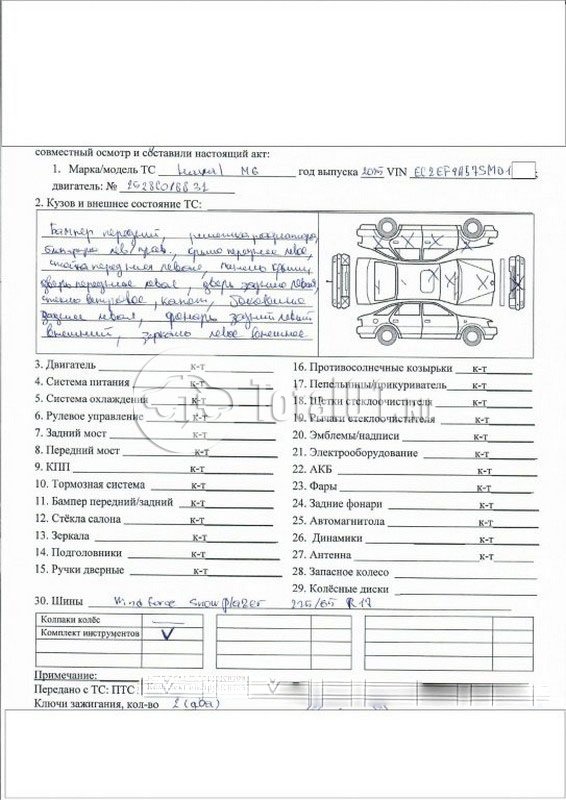 совместный осмотр и составили настоящий акт:
1. Марка/модель ТС Haval M6 год выпуска 2025 VIN
двигатель: №
2. Кузов и внешнее состояние ТС:
Бампер передний, решетка радиатора,
лев/прав., крыло переднее левое,
стойка передняя левая, панель крыши,
дверь передняя левая, дверь задняя левая,
стекло ветровое, капот, боковина
задняя левая, фонарь задний левый
внешний, зеркало левое внешнее
3. Двигатель к-т
4. Система питания к-т
5. Система охлаждения к-т
6. Рулевое управление к-т
7. Задний мост к-т
8. Передний мост к-т
9. КПП к-т
10. Тормозная система к-т
11. Бампер передний/задний к-т
12. Стёкла салона к-т
13. Зеркала к-т
14. Подголовники к-т
15. Ручки дверные к-т
16. Противосолнечные козырьки к-т
17. Пепельницы/прикуриватель к-т
18. Щетки стеклоочистителя к-т
19. Рычаги стеклоочистителя к-т
20. Эмблемы/надписи к-т
21. Электрооборудование к-т
22. АКБ к-т
23. Фары к-т
24. Задние фонари к-т
25. Автомагнитола к-т
26. Динамики к-т
27. Антенна к-т
28. Запасное колесо
29. Колёсные диски
30. Шины Windforce Snowblazer 225/65 R17
Колпаки колёс
Комплект инструментов V
Примечание:
Передано с ТС: ПТС:
Ключи зажигания, кол-во 2 (два)